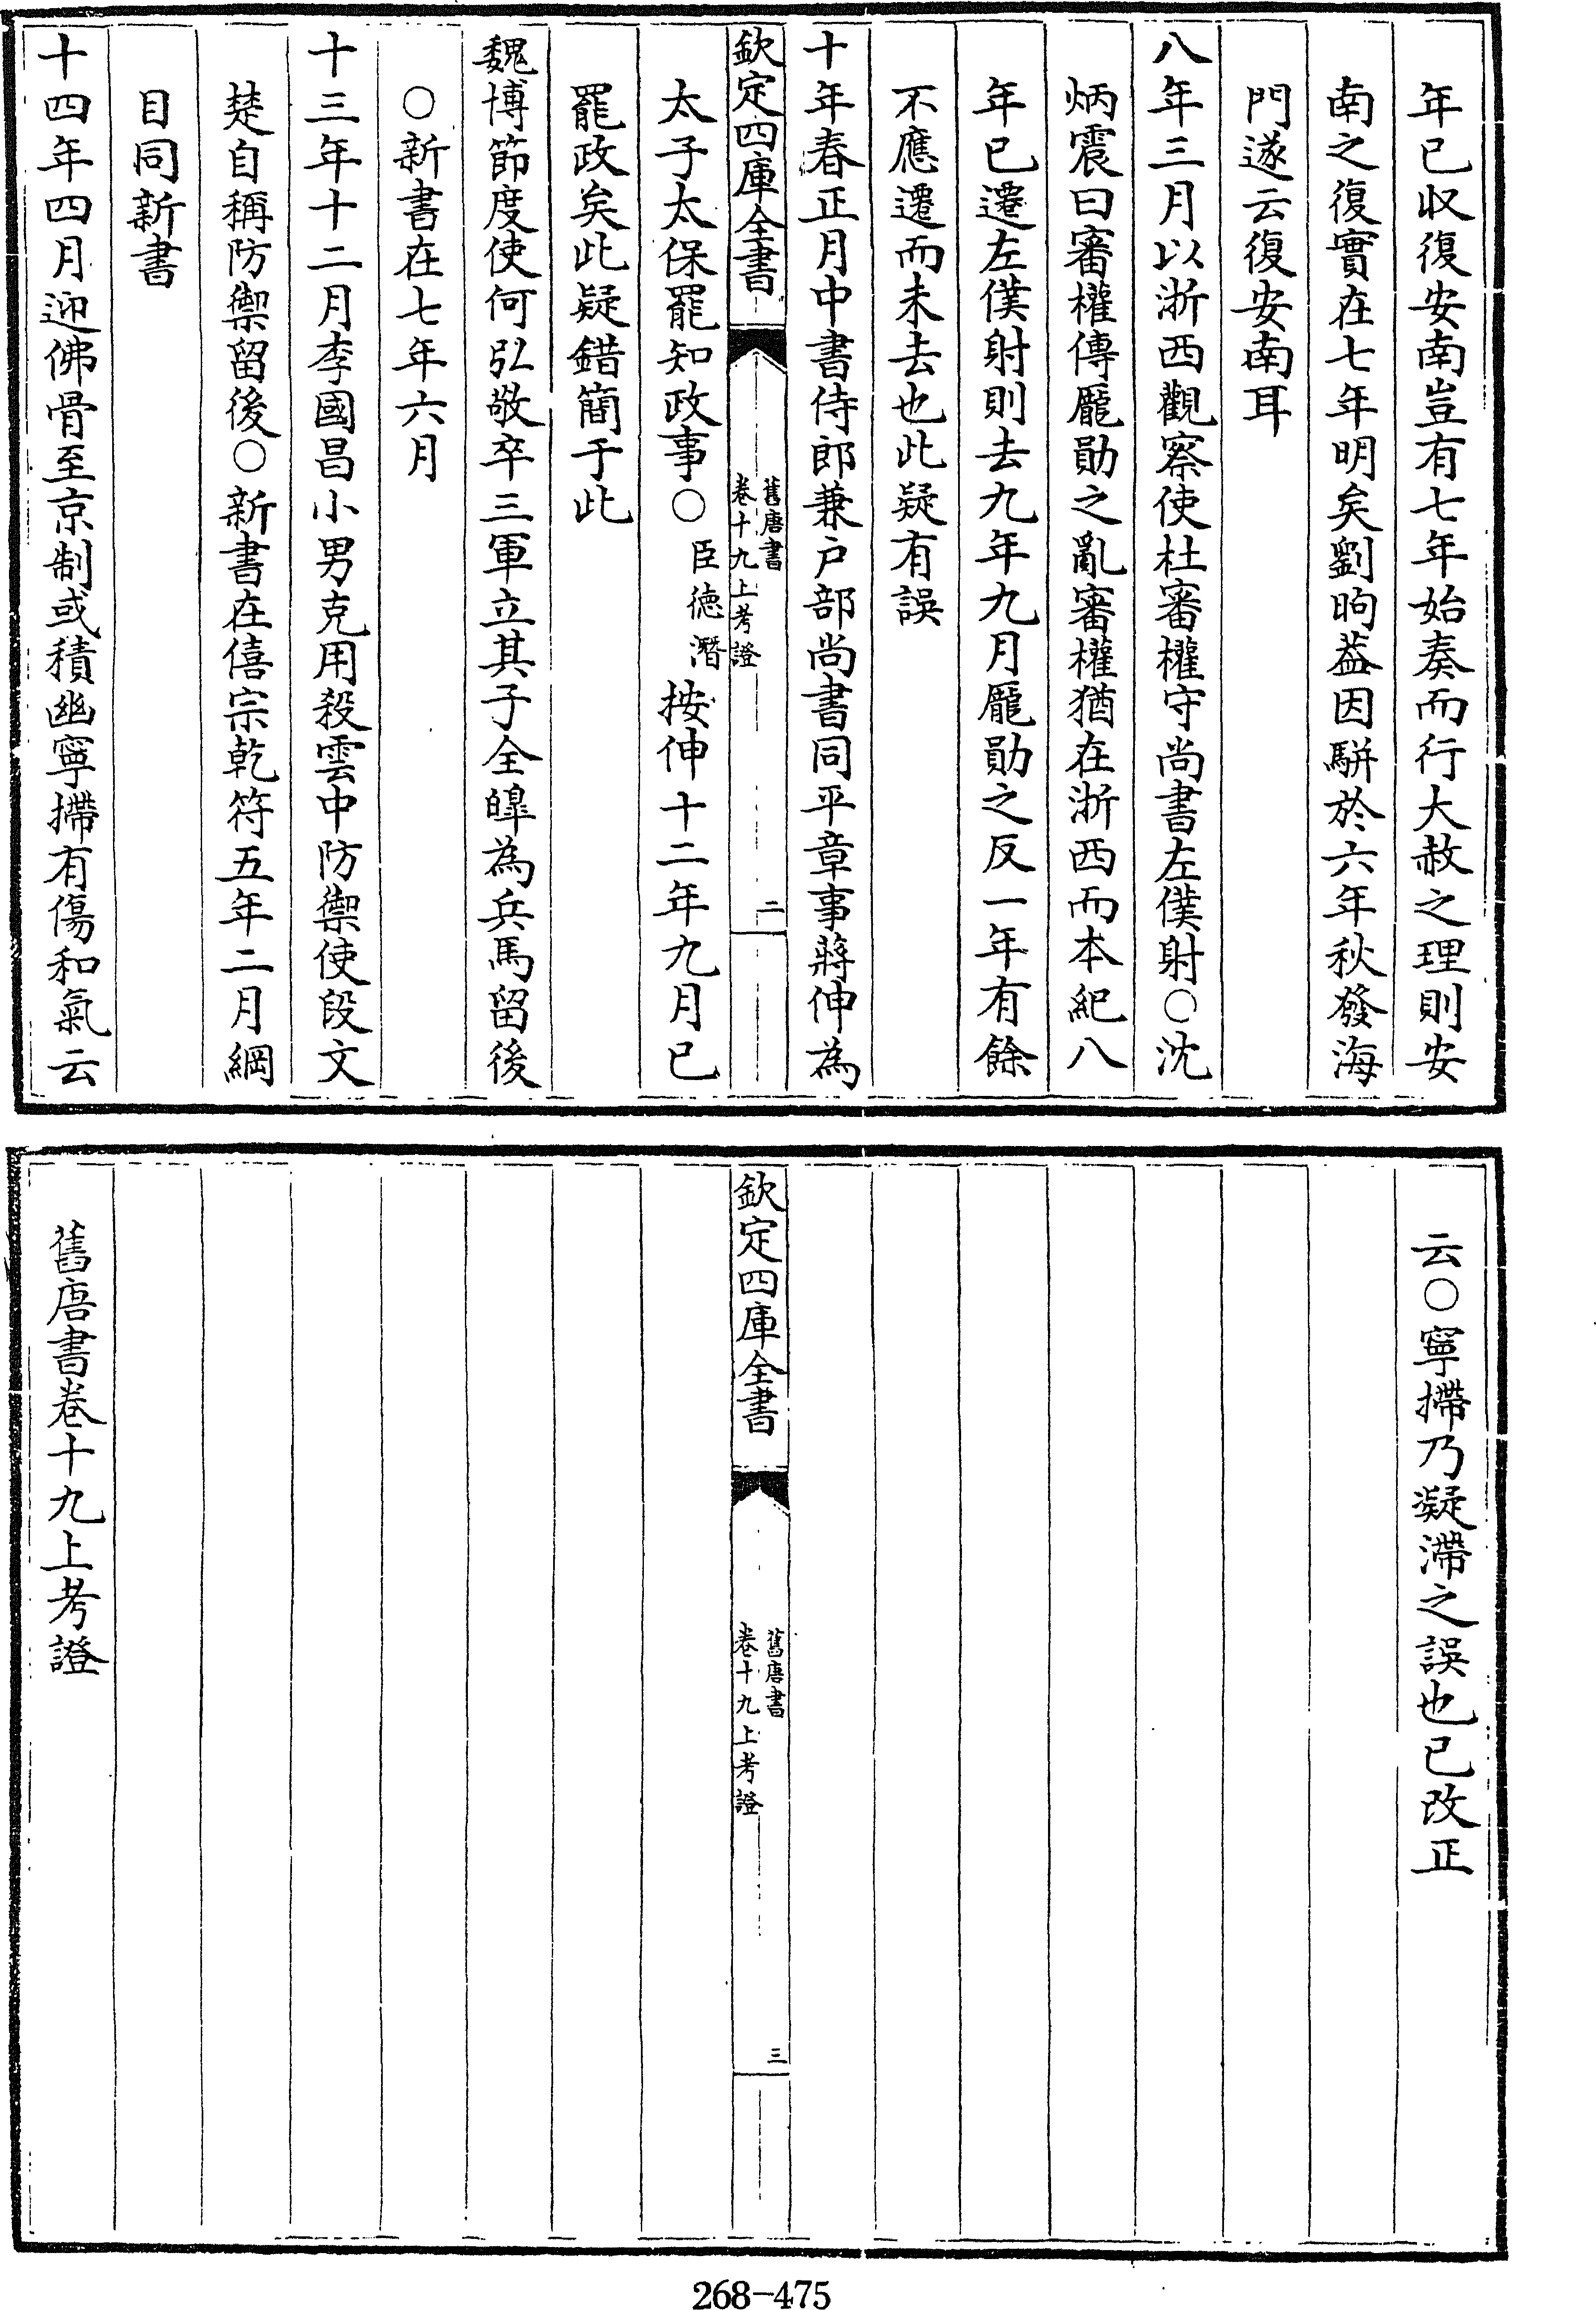 年已收復安南豈有七年始奏而行大赦之理則安
南之復實在七年明矣劉昫葢因駢於六年秋發海
門遂云復安南耳
八年三月以浙西觀察使杜審權守尚書左僕射○沈
炳震曰審權傳龐勛之亂審權猶在浙西而本紀八
年已遷左僕射則去九年九月龐勛之反一年有餘
不應遷而未去也此疑有誤
十年春正月中書侍郎兼户部尚書同平章事蔣伸為
欽定四庫全書
舊唐書
卷十九上考證
二
太子太保罷知政事○臣德潛按伸十二年九月已
罷政矣此疑錯簡于此
魏博節度使何弘敬卒三軍立其子全皥為兵馬留後
○新書在七年六月
十三年十二月李國昌小男克用殺雲中防禦使段文
楚自稱防禦留後○新書在僖宗乾符五年二月綱
目同新書
十四年四月迎佛骨至京制或積幽寧摕有傷和氣云
云○寧摕乃凝滯之誤也已改正
欽定四庫全書
舊唐書
卷十九上考證
三
舊唐書卷十九上考證
268-475